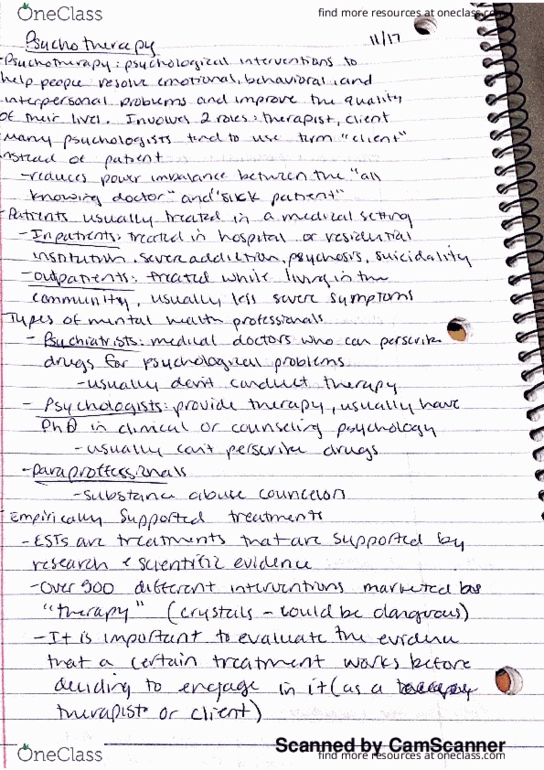 OneClass
find more resources at oneclass.com
11/17
Psychotherapy
-Psychotherapy: psychological interventions to
help people resolve emotional, behavioral, and
interpersonal problems and improve the quality
of their lives. Involves 2 roles: therapist, client
-Many psychologists tend to use term "client"
instead of patient
-reduces power imbalance between the "all
knowing doctor" and "sick patient"
-Patients usually treated in a medical setting
-Inpatients: treated in hospital or residential
institution. severe addiction, psychosis, suicidality
-outpatients: treated while living in the
community, usually less severe symptoms
Types of mental health professionals
- Psychiatrists: medical doctors who can perscribe
drugs for psychological problems
-usually don't conduct therapy
- Psychologists: provide therapy, usually have
PhD in clinical or counseling psychology
-usually can't perscribe drugs
-paraproffessionals
-substance abuse councelors
-Empirically Supported treatments
-ESTs are treatments that are supported by
research & scientific evidence
-Over 500 different interventions marketed as
"therapy" (crystals - could be dangerous)
-It is important to evaluate the evidence
that a certain treatment works before
deciding to engage in it (as a
therapist or client)
Scanned by CamScanner
OneClass
find more resources at oneclass.com